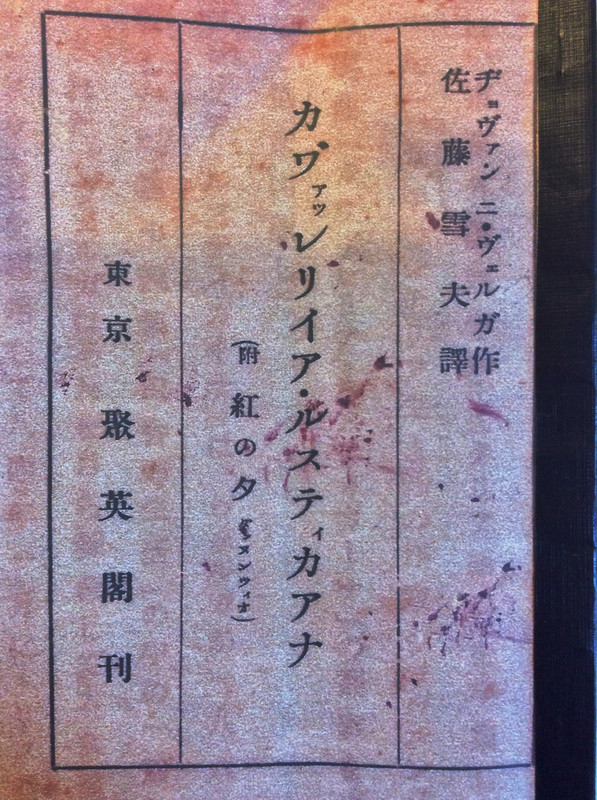 ヂョヴァンニ・ヴェルガ作
佐藤雪夫譯
カヷァッレリイア・ルスティカアナ
(附 紅の夕 ダヌンツィオ)
東京 聚英閣刊